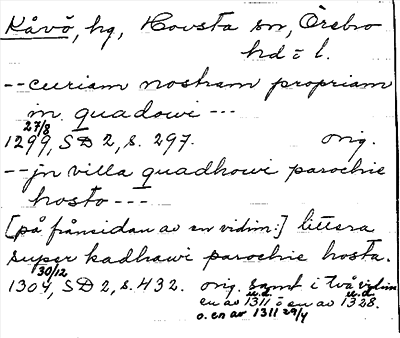 Kåvö, hg, Hovsta sn, Örebro
hd o l.
-- curiam nostram propriam
in quadowi ---
27/8
1299, SD 2, s. 297. orig.
-- jn villa quadhowi parochie
hosto ---
[på frånsidan av en vidim:] littera
super kadhawi parochie hosta.
30/12
1304, SD 2, s. 432. orig. samt i två vidim
u.d. u.d.
en av 1311 o en av 1328.
o. en av 1311 29/4